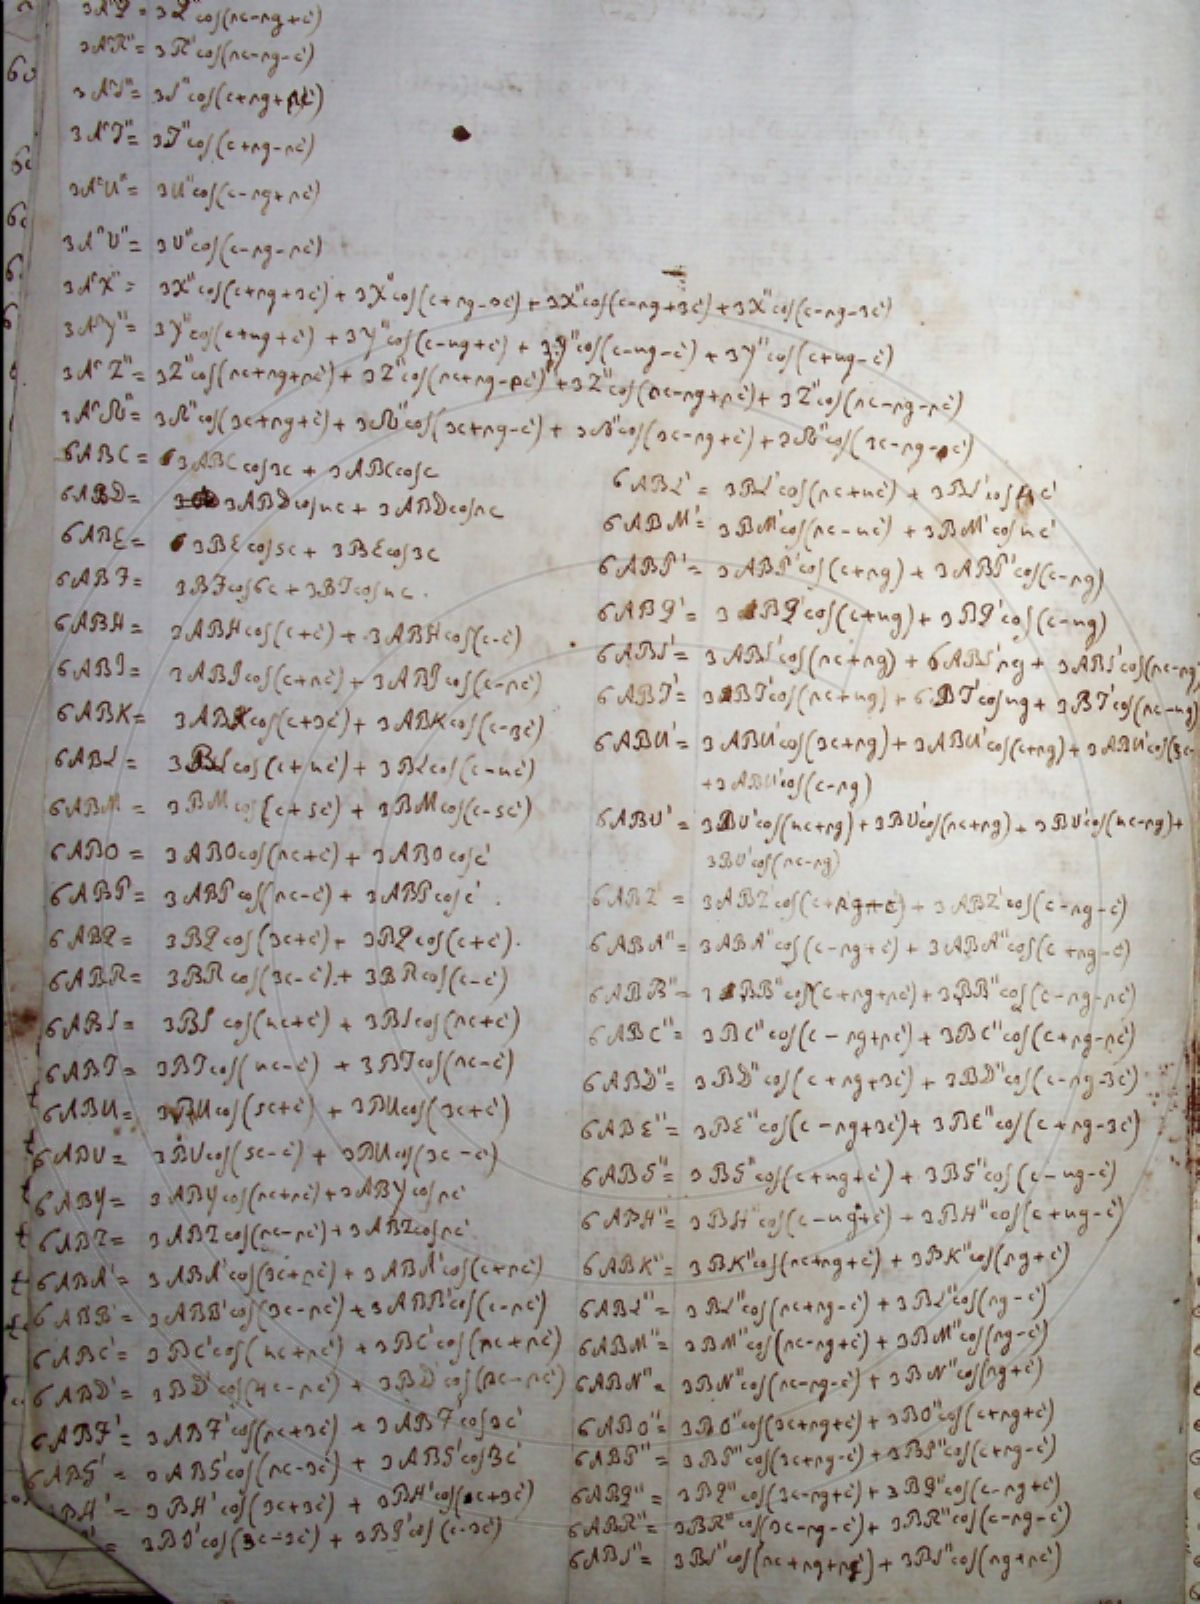 3A"Q" = 3Q" cos(nc-ng+c')
3A"R" = 3R" cos(nc-ng-c')
3A"S" = 3S" cos(c+ng+nc')
3A"T" = 3T" cos(c+ng-nc')
3A"U" = 3U" cos(c-ng+nc')
3A"V" = 3V" cos(c-ng-nc')
3A"X" = 3X" cos(c+ng+3c') + 3X" cos(c+ng-3c') + 3X" cos(c-ng+3c') + 3X" cos(c-ng-3c')
3A"Y" = 3Y" cos(c+ug+c') + 3Y" cos(c-ug+c') + 3Y" cos(c-ug-c') + 3Y" cos(c+ug-c')
3A"Z" = 3Z" cos(nc+ng+nc') + 3Z" cos(nc+ng-nc') + 3Z" cos(nc-ng+nc') + 3Z" cos(nc-ng-nc')
cos(3c+ng+c') + cos(3c+ng-c') + cos(3c-ng+c') + cos(3c-ng-c')
6ABC = 3ABC cos3c + 3ABC cosc
6ABD = 3ABD cosuc + 3ABD cosnc
6ABE = 3BE cos5c + 3BE cos3c
6ABF = 3BF cos6c + 3BF cosuc.
6ABH = 3ABH cos(c+c') + 3ABH cos(c-c')
6ABI = 3ABI cos(c+nc') + 3ABI cos(c-nc')
6ABK = 3ABK cos(c+3c') + 3ABK cos(c-3c')
6ABL = 3BL cos(c+uc') + 3BL cos(c-uc')
6ABM = 3BM cos(c+5c') + 3BM cos(c-5c')
6ABO = 3ABO cos(nc+c') + 3ABO cosc'
6ABP = 3ABP cos(nc-c') + 3ABP cosc'.
6ABQ = 3BQ cos(3c+c') + 3BQ cos(c+c').
6ABR = 3BR cos(3c-c') + 3BR cos(c-c')
6ABS = 3BS cos(uc+c') + 3BS cos(nc+c')
6ABT = 3BT cos(uc-c') + 3BT cos(nc-c')
6ABU = 3BU cos(5c+c') + 3BU cos(3c+c')
6ABV = 3BV cos(5c-c') + 3BU cos(3c-c')
6ABY = 3ABY cos(nc+nc') + 3ABY cosnc'
6ABZ = 3ABZ cos(nc-nc') + 3ABZ cosnc'
6ABA' = 3ABA' cos(3c+nc') + 3ABA' cos(c+nc')
6ABB' = 3ABB' cos(3c-nc') + 3ABB' cos(c-nc')
6ABC' = 3BC' cos(uc+nc') + 3BC' cos(nc+nc')
6ABD' = 3BD' cos(uc-nc') + 3BD' cos(nc-nc')
6ABF' = 3ABF' cos(nc+3c') + 3ABF' cos3c'
6ABG' = 3ABG' cos(nc-3c') + 3ABG' cos3c'
ABH' = 3BH' cos(3c+3c') + 3BH' cos(c+3c')
= 3BI' cos(3c-3c') + 3BI' cos(c-3c')
6ABL' = 3BL' cos(nc+uc') + 3BL' cos uc'
6ABM' = 3BM' cos(nc-uc') + 3BM' cosuc'
6ABP' = 3ABP' cos(c+ng) + 3ABP' cos(c-ng)
6ABQ' = 3BQ' cos(c+ug) + 3BQ' cos(c-ug)
6ABS' = 3ABS' cos(nc+ng) + 6ABS' ng + 3ABS' cos(nc-ng
6ABT' = 3BT' cos(nc+ug) + 6BT' cosug + 3BT' cos(nc-ug)
6ABU' = 3ABU' cos(3c+ng) + 3ABU' cos(c+ng) + 3ABU' cos(3c-
+3ABU' cos(c-ng)
6ABV' = 3BV' cos(uc+ng) + 3BV' cos(nc+ng) + 3BV' cos(uc-ng) +
3BV' cos(nc-ng)
6ABZ' = 3ABZ' cos(c+ng+c') + 3ABZ' cos(c-ng-c')
6ABA" = 3ABA" cos(c-ng+c') + 3ABA" cos(c+ng-c')
6ABB" = 3BB" cos(c+ng+nc') + 3BB" cos(c-ng-nc')
6ABC" = 3BC" cos(c-ng+nc') + 3BC" cos(c+ng-nc')
6ABD" = 3BD" cos(c+ng+3c') + 3BD" cos(c-ng-3c')
6ABE" = 3BE" cos(c-ng+3c') + 3BE" cos(c+ng-3c')
6ABG" = 3BG" cos(c+ug+c') + 3BG" cos(c-ug-c')
6ABH" = 3BH" cos(c-ug+c') + 3BH" cos(c+ug-c')
6ABK" = 3BK" cos(nc+ng+c') + 3BK" cos(ng+c')
6ABL" = 3BL" cos(nc+ng-c') + 3BL" cos(ng-c')
6ABM" = 3BM" cos(nc-ng+c') + 3BM" cos(ng-c')
6ABN" = 3BN" cos(nc-ng-c') + 3BN" cos(ng+c')
6ABO" = 3BO" cos(3c+ng+c') + 3BO" cos(c+ng+c')
6ABP" = 3BP" cos(3c+ng-c') + 3BP" cos(c+ng-c')
6ABQ" = 3BQ" cos(3c-ng+c') + 3BQ" cos(c-ng+c')
6ABR" = 3BR" cos(3c-ng-c') + 3BR" cos(c-ng-c')
6ABS" = 3BS" cos(nc+ng+nc') + 3BS" cos(ng+nc')